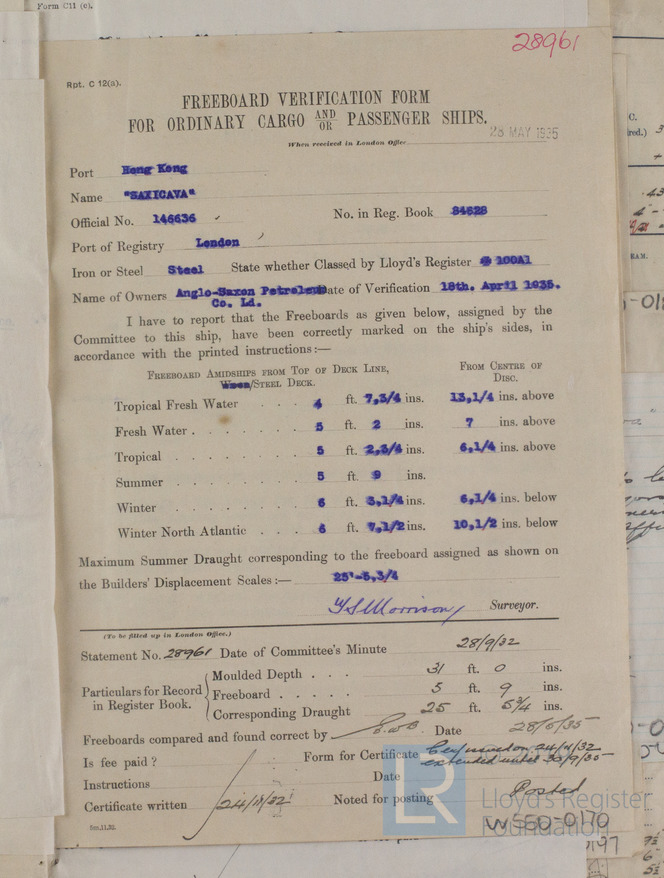 Form C11 (c).
28961
Rpt. C 12(a).
FREEBOARD VERIFICATION FORM
FOR ORDINARY CARGO AND/OR PASSENGER SHIPS.
28 MAY 1935
When received in London Office
Port Hong Kong
Name "SAXICAVA"
Official No. 146636 No. in Reg. Book 84628
Port of Registry London
Iron or Steel Steel State whether Classed by Lloyd's Register 100A1
Name of Owners Anglo-Saxon Petroleum Date of Verification 18th. April 1935.
Co. Ld.
I have to report that the Freeboards as given below, assigned by the
Committee to this ship, have been correctly marked on the ship's sides, in
accordance with the printed instructions:—
Freeboard Amidships from Top of Deck Line, From Centre of
Wood/Steel Deck. Disc.
Tropical Fresh Water . . . 4 ft. 7,3/4 ins. 13,1/4 ins. above
Fresh Water . . . . . . . 5 ft. 2 ins. 7 ins. above
Tropical . . . . . . . . 5 ft. 2,3/4 ins. 6,1/4 ins. above
Summer . . . . . . . . 5 ft. 9 ins.
Winter . . . . . . . . 6 ft. 3,1/4 ins. 6,1/4 ins. below
Winter North Atlantic . . . 6 ft. 7,1/2 ins. 10,1/2 ins. below
Maximum Summer Draught corresponding to the freeboard assigned as shown on
the Builders' Displacement Scales:— 25'-5,3/4
Morrison Surveyor.
(To be filled up in London Office.)
Statement No. 28961 Date of Committee's Minute 28/9/32
Particulars for Record in Register Book.
Moulded Depth . . . 31 ft. 0 ins.
Freeboard . . . . . 5 ft. 9 ins.
Corresponding Draught 25 ft. 5¾ ins.
Freeboards compared and found correct by Date 28/5/35
Is fee paid? Form for Certificate 24/11/32
extended until 30/9/35
Instructions Date
Certificate written 24/11/32 Noted for posting Posted
5m,11,32.
LR Lloyd's Register
Foundation
W550-0170